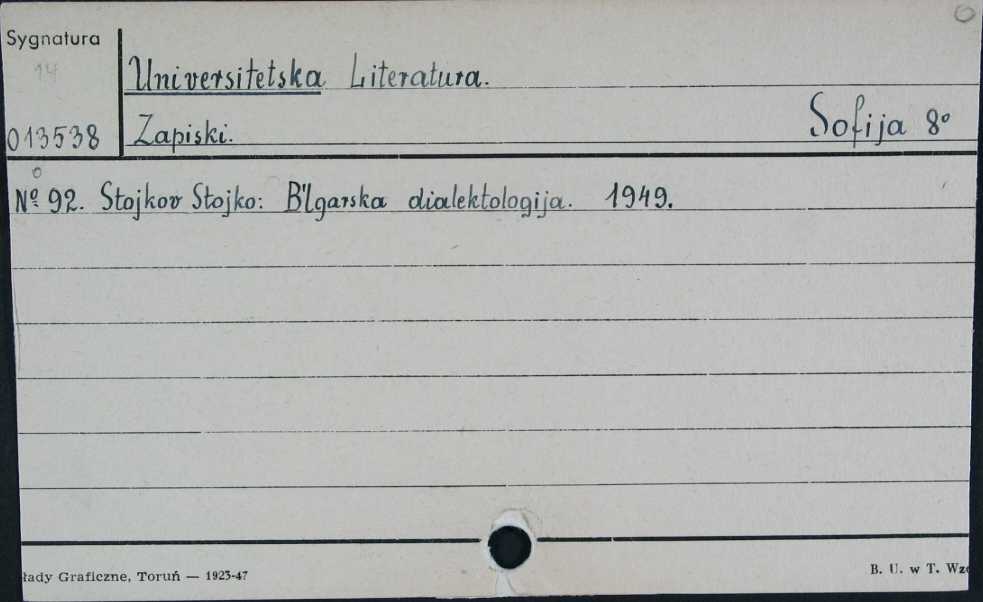 Sygnatura
14
Universitetska Literatura.
013538
Zapiski.
Sofija 8º
Nº 92. Stojkov Stojko: B'lgarska dialektologija. 1949.
łady Graficzne, Toruń — 1923-47
B. U. w T.